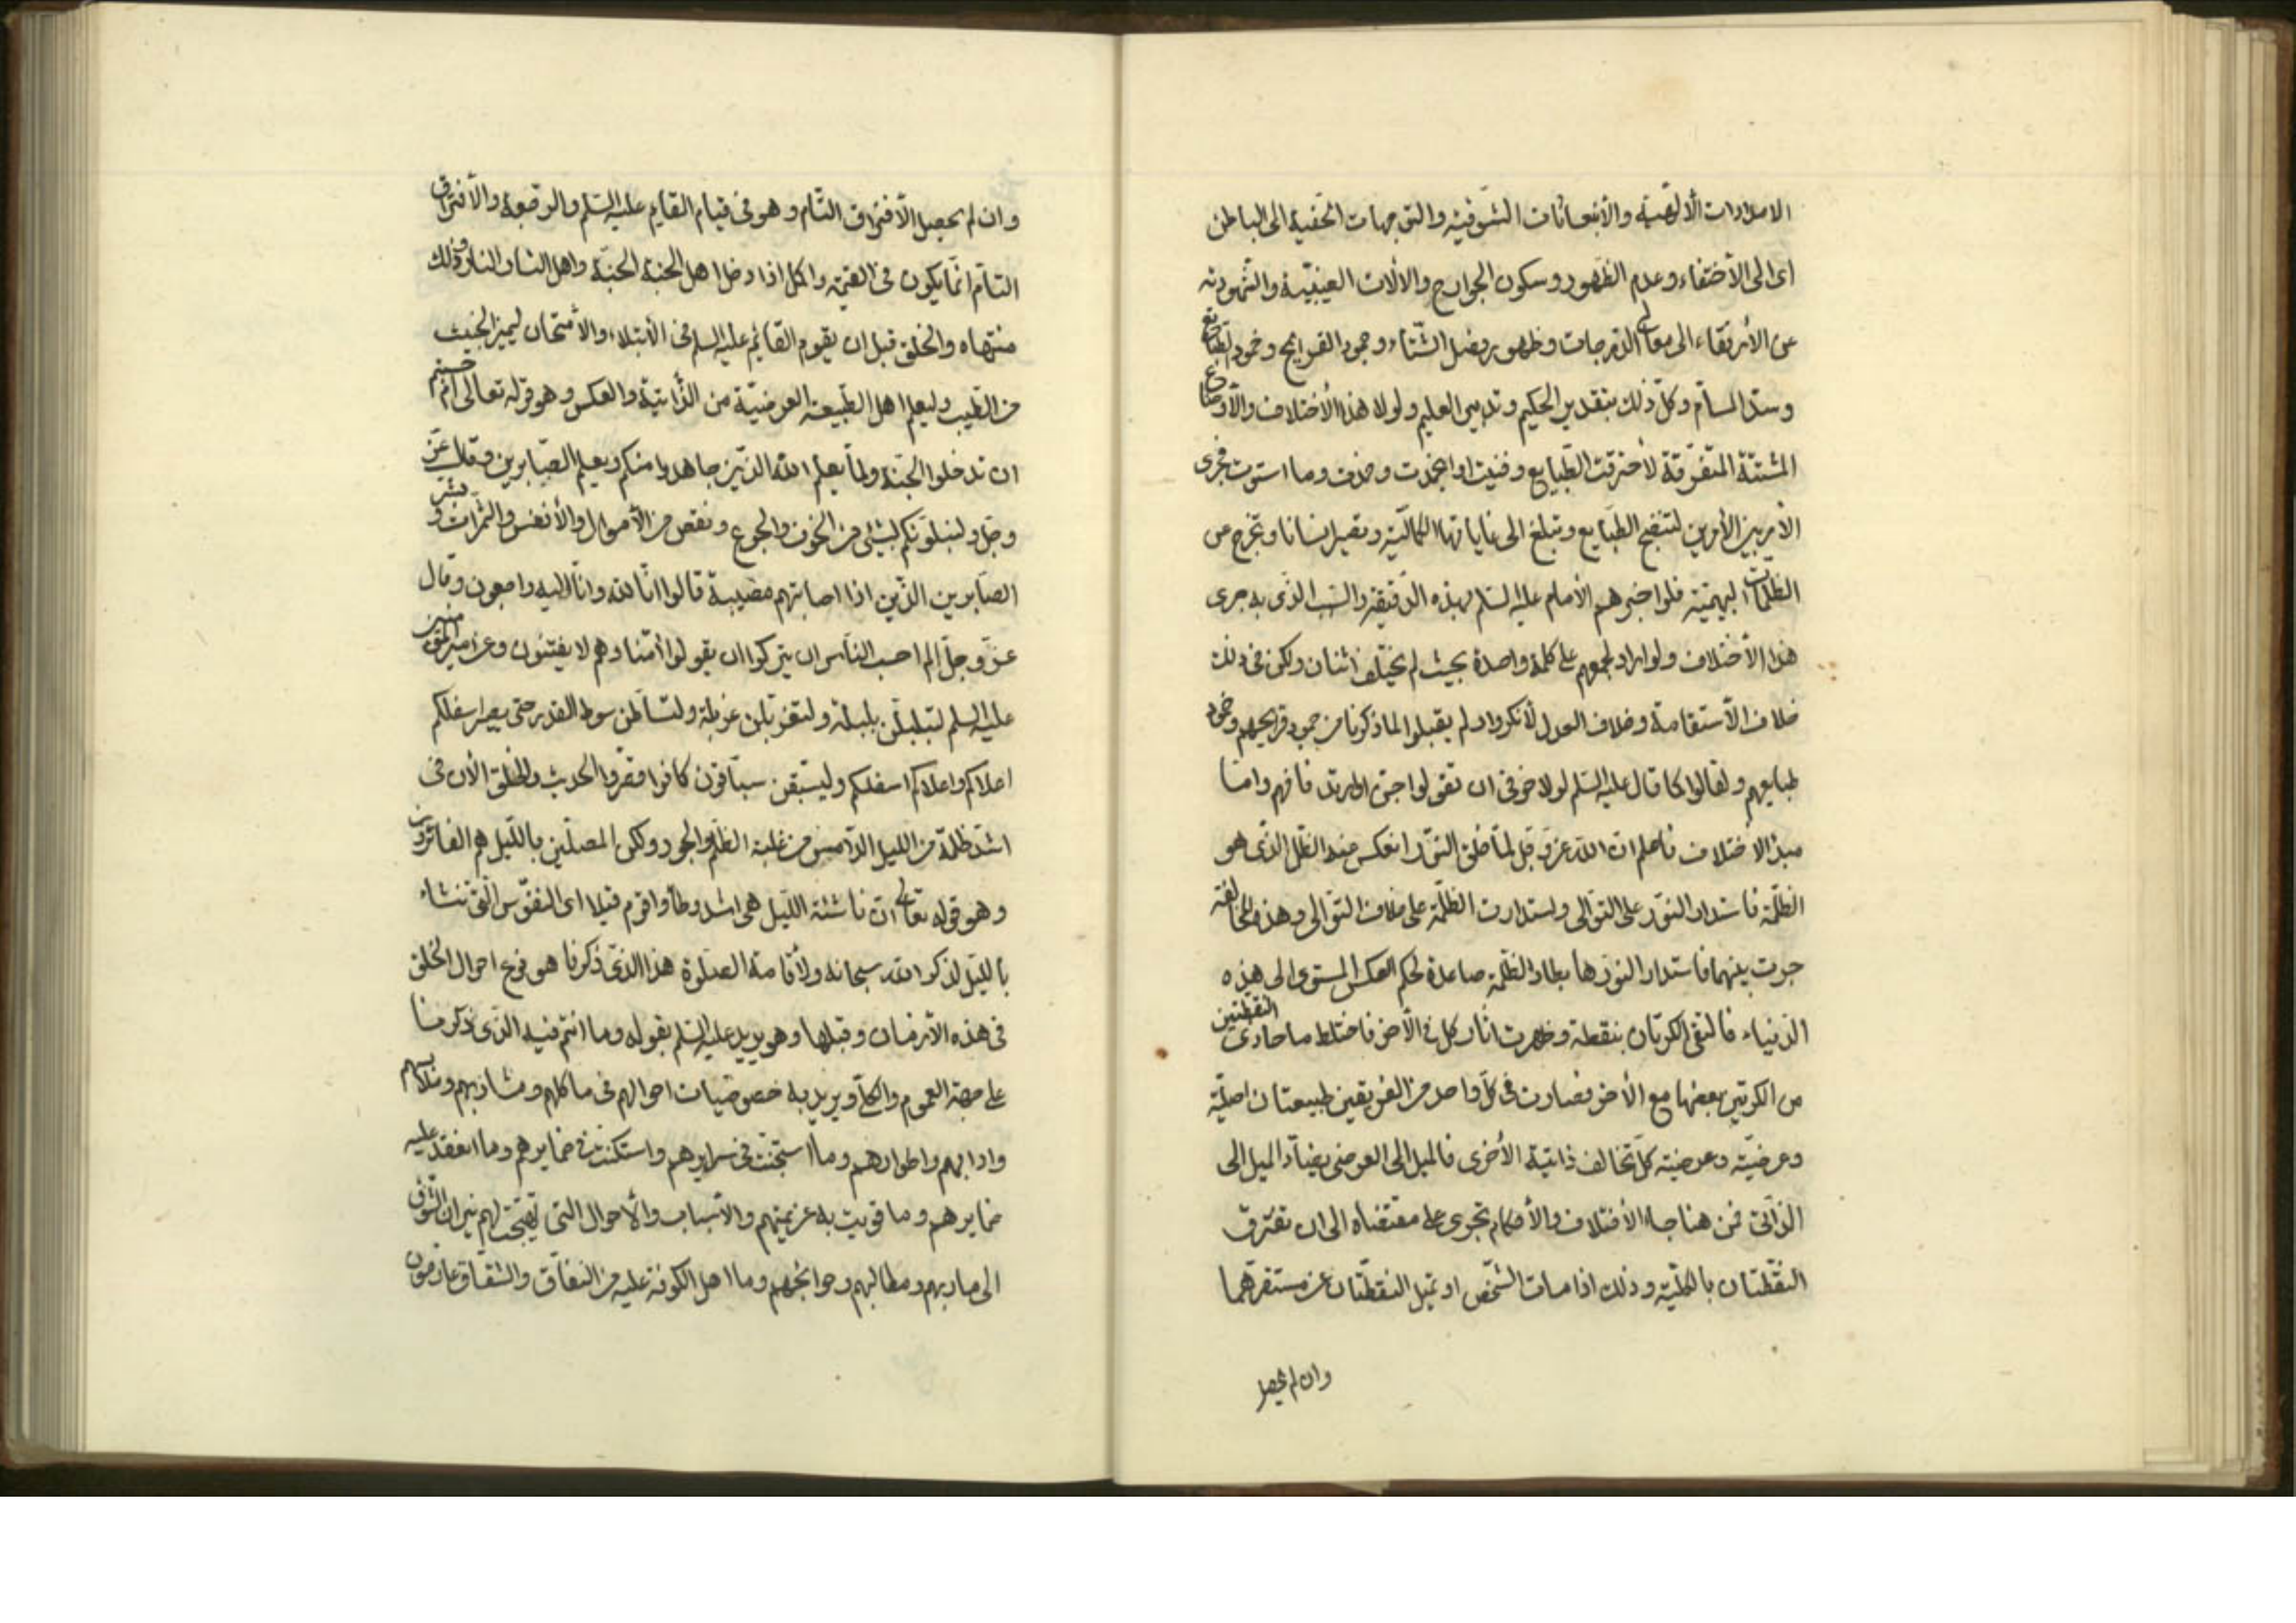 الامدادات الألهيّة والأنبعاثات الشوقيّه والتوجهات الخفية الى الباطن
اى الى الأختفاء وعدم الظهور وسكون الجوارح والالات الغيبيّة والشهوديّه
عن الأرتقاء الى معالى الدرجات وظهور فصل الشتاء وجمود القرايح وخمود الطبايع
وسدّ المسام وكلّ ذلك بتقدير الحكيم وتدبير العليم ولولا هذا الأختلاف والأوضاع
المشتتة المتفرّقة لأحترقت الطّبايع وفنيت او انجمدت وما استوت فجرى
الأمر بين الأمرين لتنضج الطبايع وتبلغ الى غاياتها الكماليّة وتصير انسانا وتخرج عن
الظلمات البهيمية فلو اخبرهم الأمام عليه السّلم بهذه الدقيقة والسّبب الذى به جرى
هذا الأختلاف ولو اراد لجمعهم على كلمة واحدة بحيث لم يختلف اثنان ولكن فى ذلك
خلاف الأستقامة وخلاف العدل لأنكروا ولم يقبلوا لما ذكرنا من جمود قرايحهم وخمود
طبايعهم ولقالوا كما قال عليه السّلم لولا خوفى ان تقولوا جنّ او ارتد فافهم وامّا
مبدء الاختلاف فاعلم ان الله عزّ وجل لمّا خلق النوّر انعكس منه الظّل الذّى هو
الظلّمة فاستدار النوّر على التوّالى واستدارت الظّلمة على خلاف التوّالى وهذه المخالفة
جرت بينهما فاستدار النوّر هابطا والظّلمة صاعدة لحكم العكس المستوى الى هذه
الدنياء فالتقى الكرتان بنقطة وظهرت اثار كل فى الأخر فاختلط ما حاذى النقطتين
من الكرتين بعضها مع الأخر فصارت فى كلّ واحد من الفريقين طبيعتان اصليّة
وعرضيّة وعرضية كلّ تخالف ذاتية الأخرى فالميل الى العرضى يضادّ الميل الى
الذّاتى فمن هنا جاء الأختلاف والأحكام تجرى على مقتضاه الى ان تفترق
النقّطتان بالكليّة وذلك اذا مات الشخّص او تميل النقطتان عن مستقرهما
وان لم يحصل
وان لم يحصل الأفتراق التّام وهو فى قيام القايم عليه السّلم والرّجعة والأفتراق
التامّ انمّا يكون فى القيمة والكل اذا دخل اهل الجنة الجنّة واهل النار النار وذلك
منتهاه والخلق قبل ان يقوم القائم عليه السلم فى الأبتلاء والأمتحان ليميز الخبيث
من الطيب وليعلم اهل الطّبيعة العرضيّة من الذّاتيّة والعكس وهو قوله تعالى ام حسبتم
ان تدخلوا الجنّة ولمّا يعلم الله الذّين جاهدوا منكم ويعلم الصّابرين وقال عزّ
وجلّ ولنبلونّكم بشئ من الخوف والجوع ونقص من الأموال والأنفس والثمرات وبشّر
الصّابرين الذّين اذا اصابتهم مصيبة قالوا انّا لله وانّا اليه راجعون وقال
عزّ وجلّ الم احسب النّاس ان يتركوا ان يقولوا امنّا وهم لا يفتنون وعن امير المؤمنين
عليه السلم لتبلبلنّ بلبلة ولتغربلن غربلة ولتساطن سوط القدر حتى يصير اسفلكم
اعلاكم واعلاكم اسفلكم وليسبقن سبّاقون كانوا قصّروا الحديث والخلق الأن فى
اشدّ ظلمة من الليل الدّامس من غلبة الظلم والجور ولكن المصلّين بالليّل هم الفائزون
وهو قوله تعالى ان ناشئة الليّل هى اشد وطأ واقوم قيلا اى النفوّس التّى تنشاء
بالليّل لذكر الله سبحانه ولأقامة الصّلوة هذا الذى ذكرنا هو نوع احوال الخلق
فى هذه الأزمان وقبلها وهو يريد عليه السّلم بقوله وما انتم فيه الذى ذكرنا
على جهة العموم والكلّ ويريد به خصوصيات احوالهم فى ماكلهم ومشاربهم وملابسهم
وادابهم واطوارهم وما استجنّت فى سرايرهم واستكنّت فى ضمايرهم وما انعقد عليه
ضمايرهم وما قويت به عزيمتهم والأسباب والأحوال التى تهيجت لهم نيران الشوق
الى ماربهم ومطالبهم وحوائجهم وما اهل الكوفة عليه من النفاق والشقاق عازمون